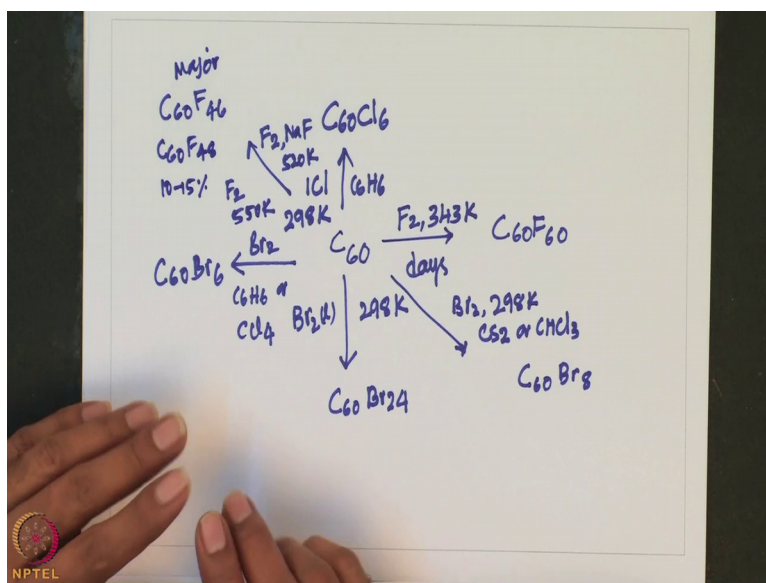 Major
C60F46
C60F48
10-15%
F2, NaF
520K
F2
550K
C60Cl6
ICl
C6H6
298K
C60
F2, 343K
days
C60F60
Br2
C6H6 or
CCl4
C60Br6
Br2(l)
298K
C60Br24
Br2, 298K
CS2 or CHCl3
C60Br8
NPTEL